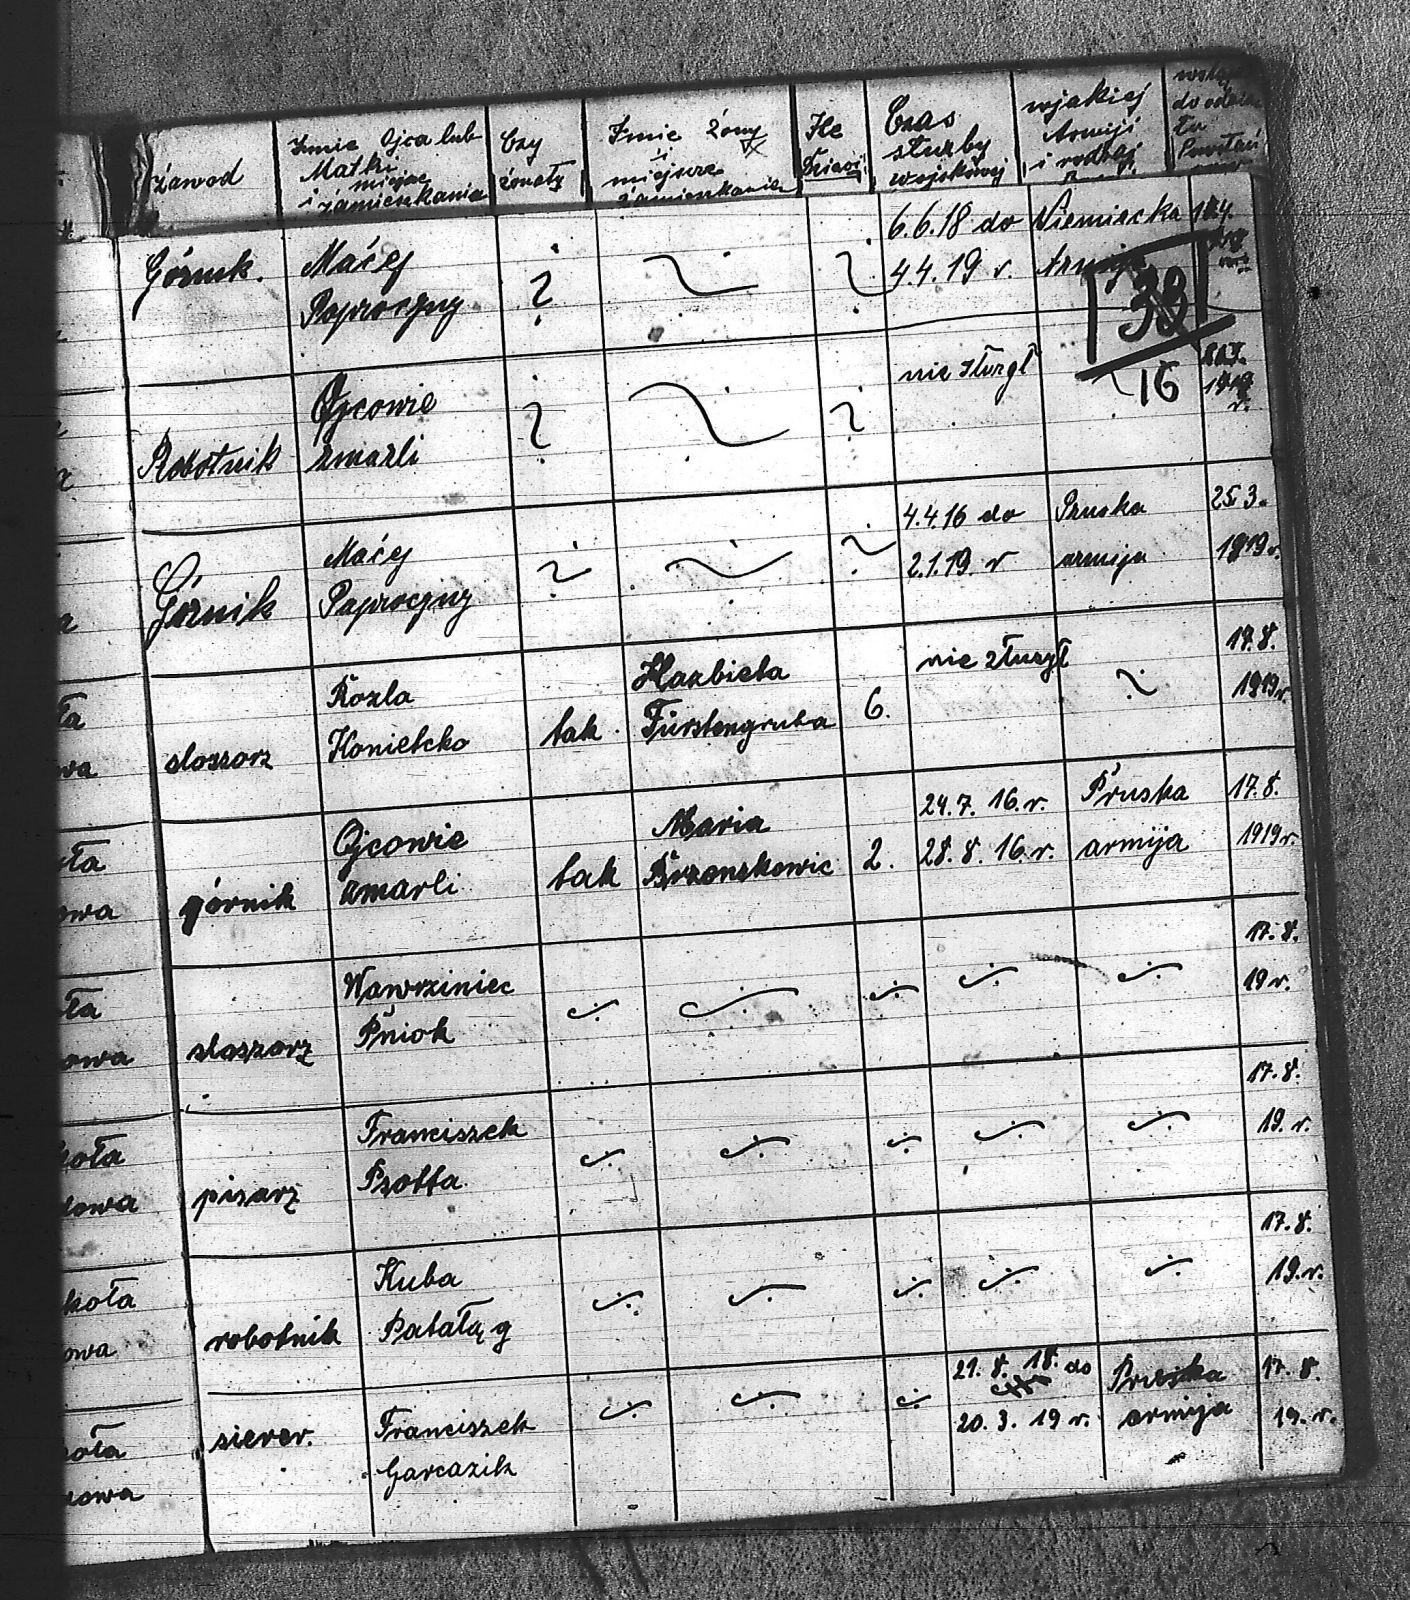 zawod
Imie Ojca lub
Matki
i miejsc
zamieszkania
Czy
żonaty
Imie żony
i
miejsce
zamieszkania
Ile
Dzieci
Czas
służby
wojskowej
wjakiej
Armiji
i rodzaj
do oddzia
łu
Powstań
Górnik.
Maćej
Paprocyny
6.6.18 do
4.4.19 r.
Niemiecka
Armija
33
16
Robotnik
Ojcowie
zmarli
nie służył
1919
r.
Górnik
Maćej
Paprocyny
4.4.16 do
2.1.19. r
Pruska
armija
25.3.
1919 r.
ła
wa
slosarz
Rozla
Konietcko
tak.
Hazbieta
Fürstengruba
6.
nie służył
17.8.
1919 r.
yła
owa
górnik
Ojcowie
zmarli
tak
Maria
Brzonskowic
2.
24.7. 16. r.
28. 8. 16. r.
Pruska
armija
17. 8.
1919 r.
ła
owa
sloszorz
Wawrziniec
Pniok
17. 8.
19 r.
oła
owa
pisarz
Franciszek
Psotta
17. 8.
19. r.
koła
owa
robotnik
Kuba
Patałąg
17. 8.
19. r.
oła
owa
sierer.
Franciszek
Garcazik
21. 8. 18. do
20. 3. 19 r.
Pruska
armija
17. 8.
19. r.